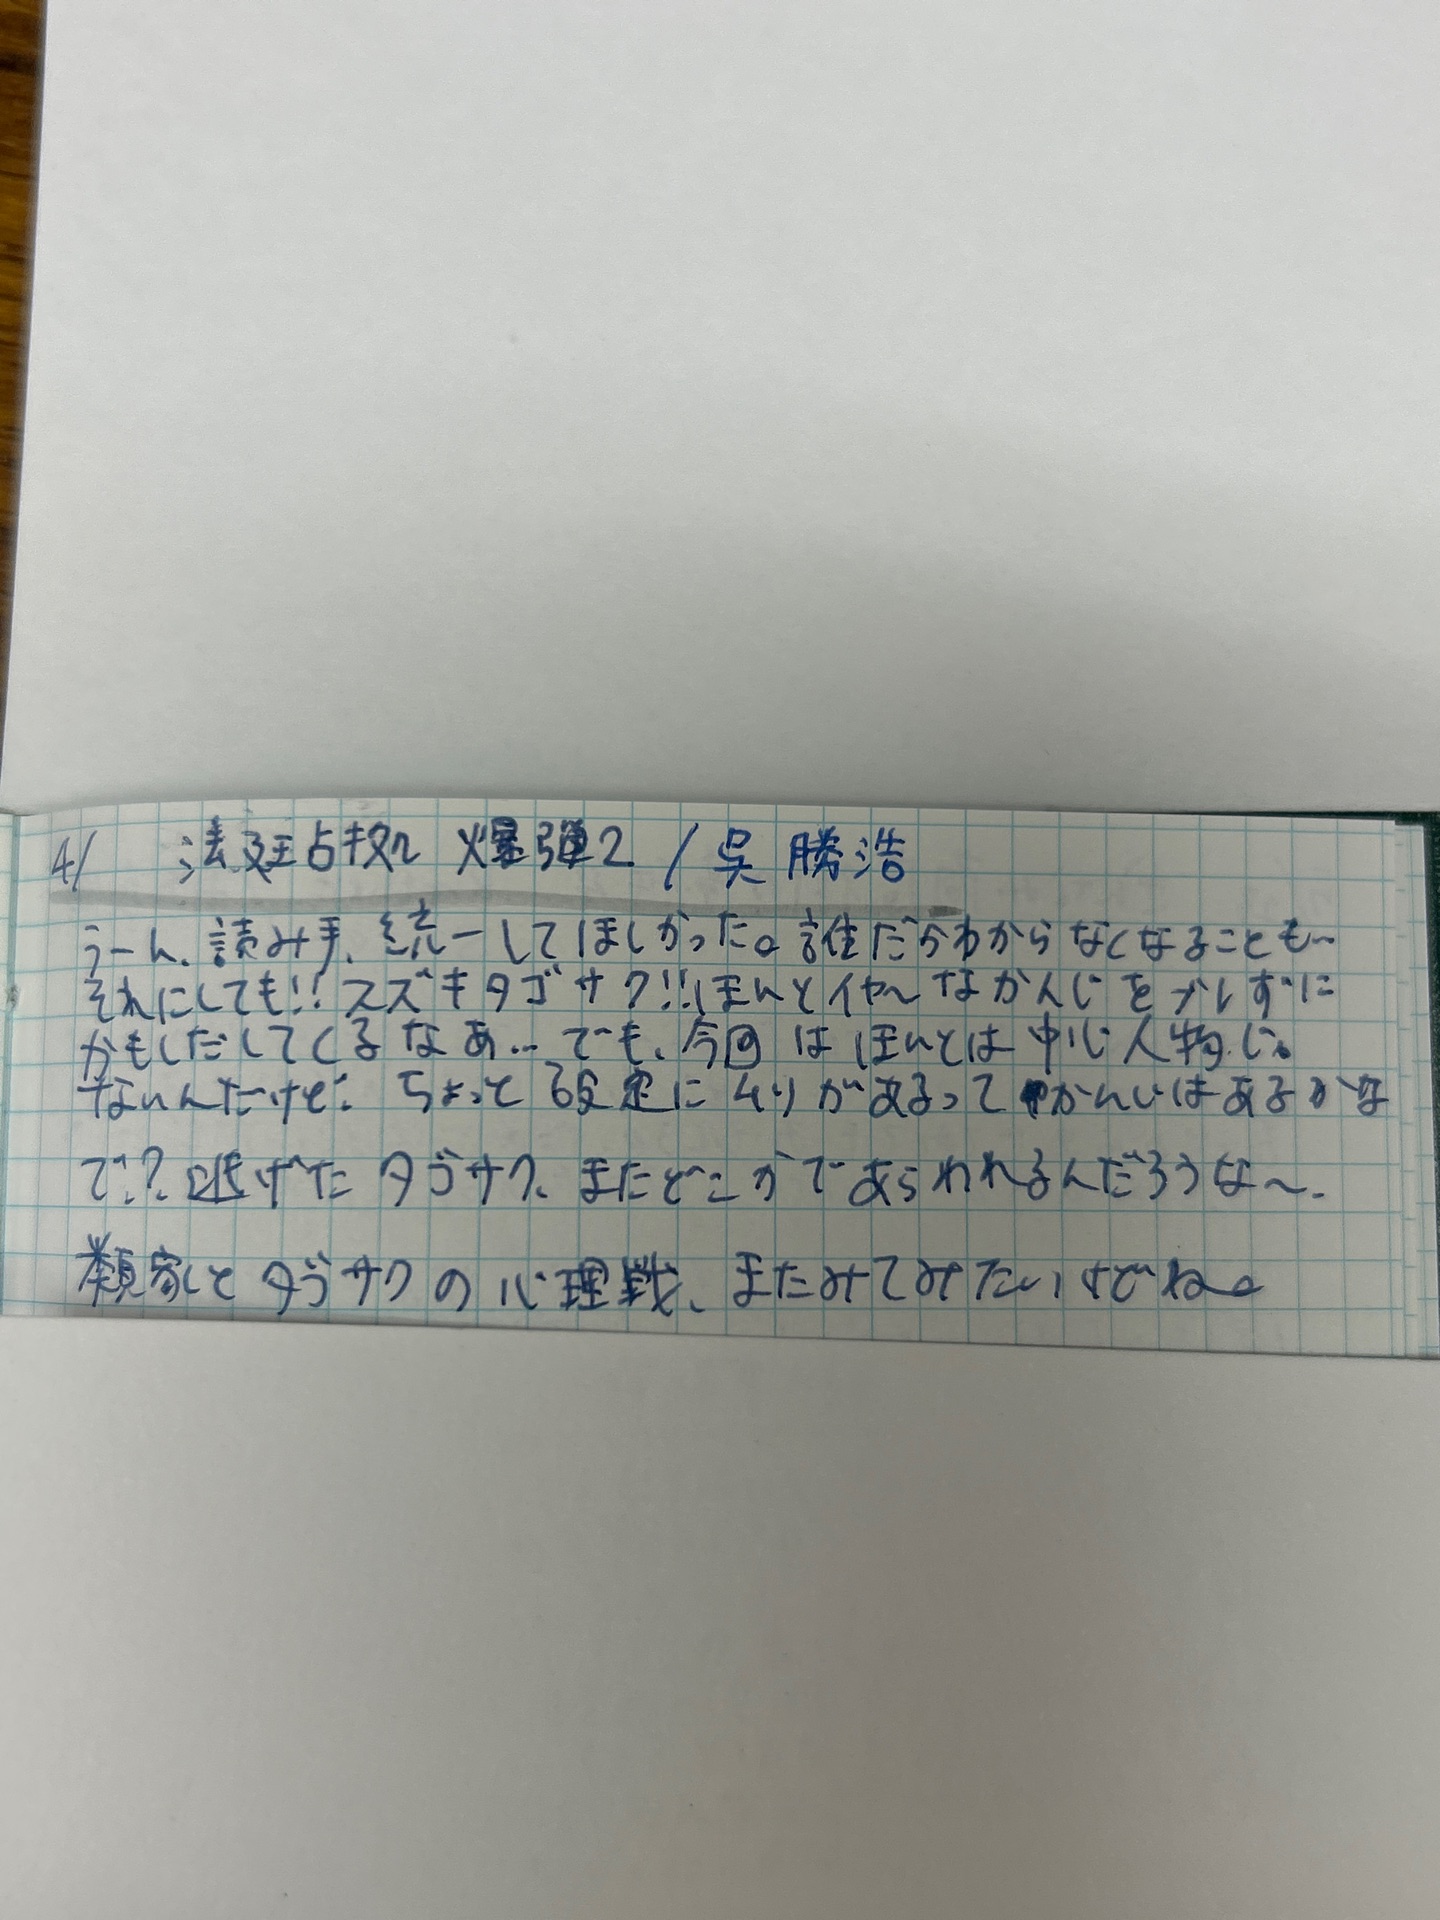 4/ 法廷占拠 爆弾2 / 呉 勝浩
うーん、読み手、統一してほしかった。誰だかわからなくなることも〜
それにしても!!スズキタゴサク!!ほんとイヤ〜なかんじをブレずに
かもしだしてくるなぁ… でも、今回はほんとは中心人物じゃ
ないんだけど。ちょっと設定にムリがあるってかんじはあるかな
で?逃げたタゴサク、またどこかであらわれるんだろうな〜。
類家とタゴサクの心理戦、またみてみたいけどね。